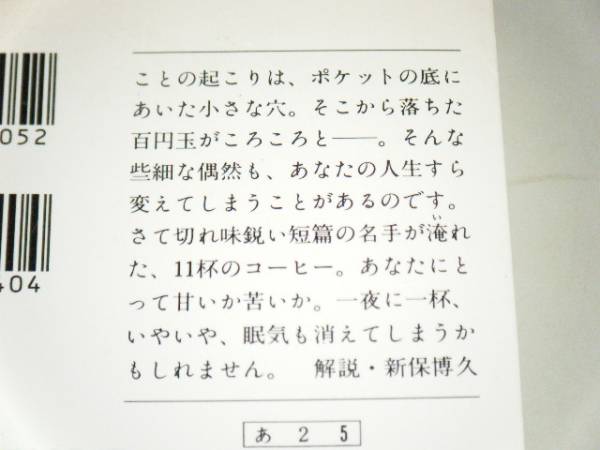 052
404
ことの起こりは、ポケットの底に
あいた小さな穴。そこから落ちた
百円玉がころころと――。そんな
些細な偶然も、あなたの人生すら
変えてしまうことがあるのです。
さて切れ味鋭い短篇の名手が淹れ
い
た、11杯のコーヒー。あなたにと
って甘いか苦いか。一夜に一杯、
いやいや、眠気も消えてしまうか
もしれません。　解説・新保博久
あ 2 5